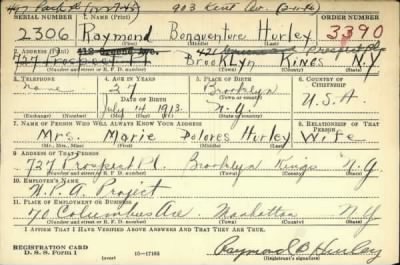 903 Kent Av.
SERIAL NUMBER 1. NAME (Print) ORDER NUMBER
2306 Raymond Bonaventure Hurley 3390
(First) (Middle) (Last)
2. ADDRESS (Print)
727 Prospect Pl Brooklyn Kings N.Y.
(Number and street or R. F. D. number) (Town) (County) (State)
3. TELEPHONE 4. AGE IN YEARS 5. PLACE OF BIRTH 6. COUNTRY OF CITIZENSHIP
none 27 Brooklyn U.S.A
DATE OF BIRTH (Town or county)
July 14 1913 N.Y.
(Mo.) (Day) (Yr.) (State or country)
7. NAME OF PERSON WHO WILL ALWAYS KNOW YOUR ADDRESS 8. RELATIONSHIP OF THAT PERSON
Mrs. Marie Dolores Hurley Wife
(Mr., Mrs., Miss) (First) (Middle) (Last)
9. ADDRESS OF THAT PERSON
727 Prospect Pl. Brooklyn Kings N.Y
(Number and street or R. F. D. number) (Town) (County) (State)
10. EMPLOYER'S NAME
W.P.A. Project
11. PLACE OF EMPLOYMENT OR BUSINESS
70 Columbus Ave. Manhattan N.Y
(Number and street or R. F. D. number) (Town) (County) (State)
I AFFIRM THAT I HAVE VERIFIED ABOVE ANSWERS AND THAT THEY ARE TRUE.
REGISTRATION CARD
D. S. S. Form 1 (over) 16-17105 Raymond B Hurley
(Registrant's signature)